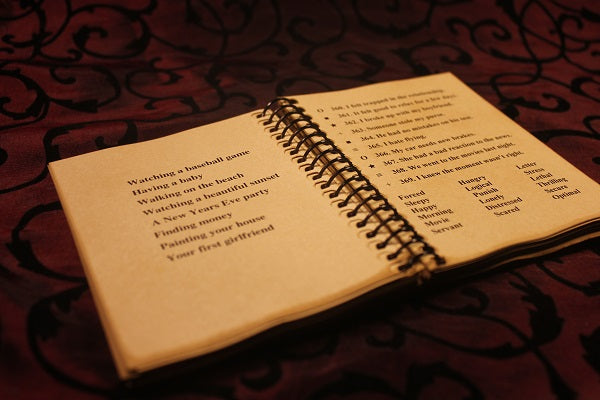 Watching a baseball game
Having a baby
Walking on the beach
Watching a beautiful sunset
A New Years Eve party
Finding money
Painting your house
Your first girlfriend
360. I felt trapped in the relationship.
361. It felt good to relax for a few days.
362. I broke up with my boyfriend.
363. Someone stole my purse.
364. He had no mistakes on his test.
365. I hate flying.
366. My car needs new brakes.
367. She had a bad reaction to the news.
368. We went to the movies last night.
369. I knew the moment wasn't right.
Forced Hungry Letter
Sleepy Logical Siren
Happy Punish Lethal
Morning Lonely Thrilling
Movie Distressed Secure
Servant Scared Optional